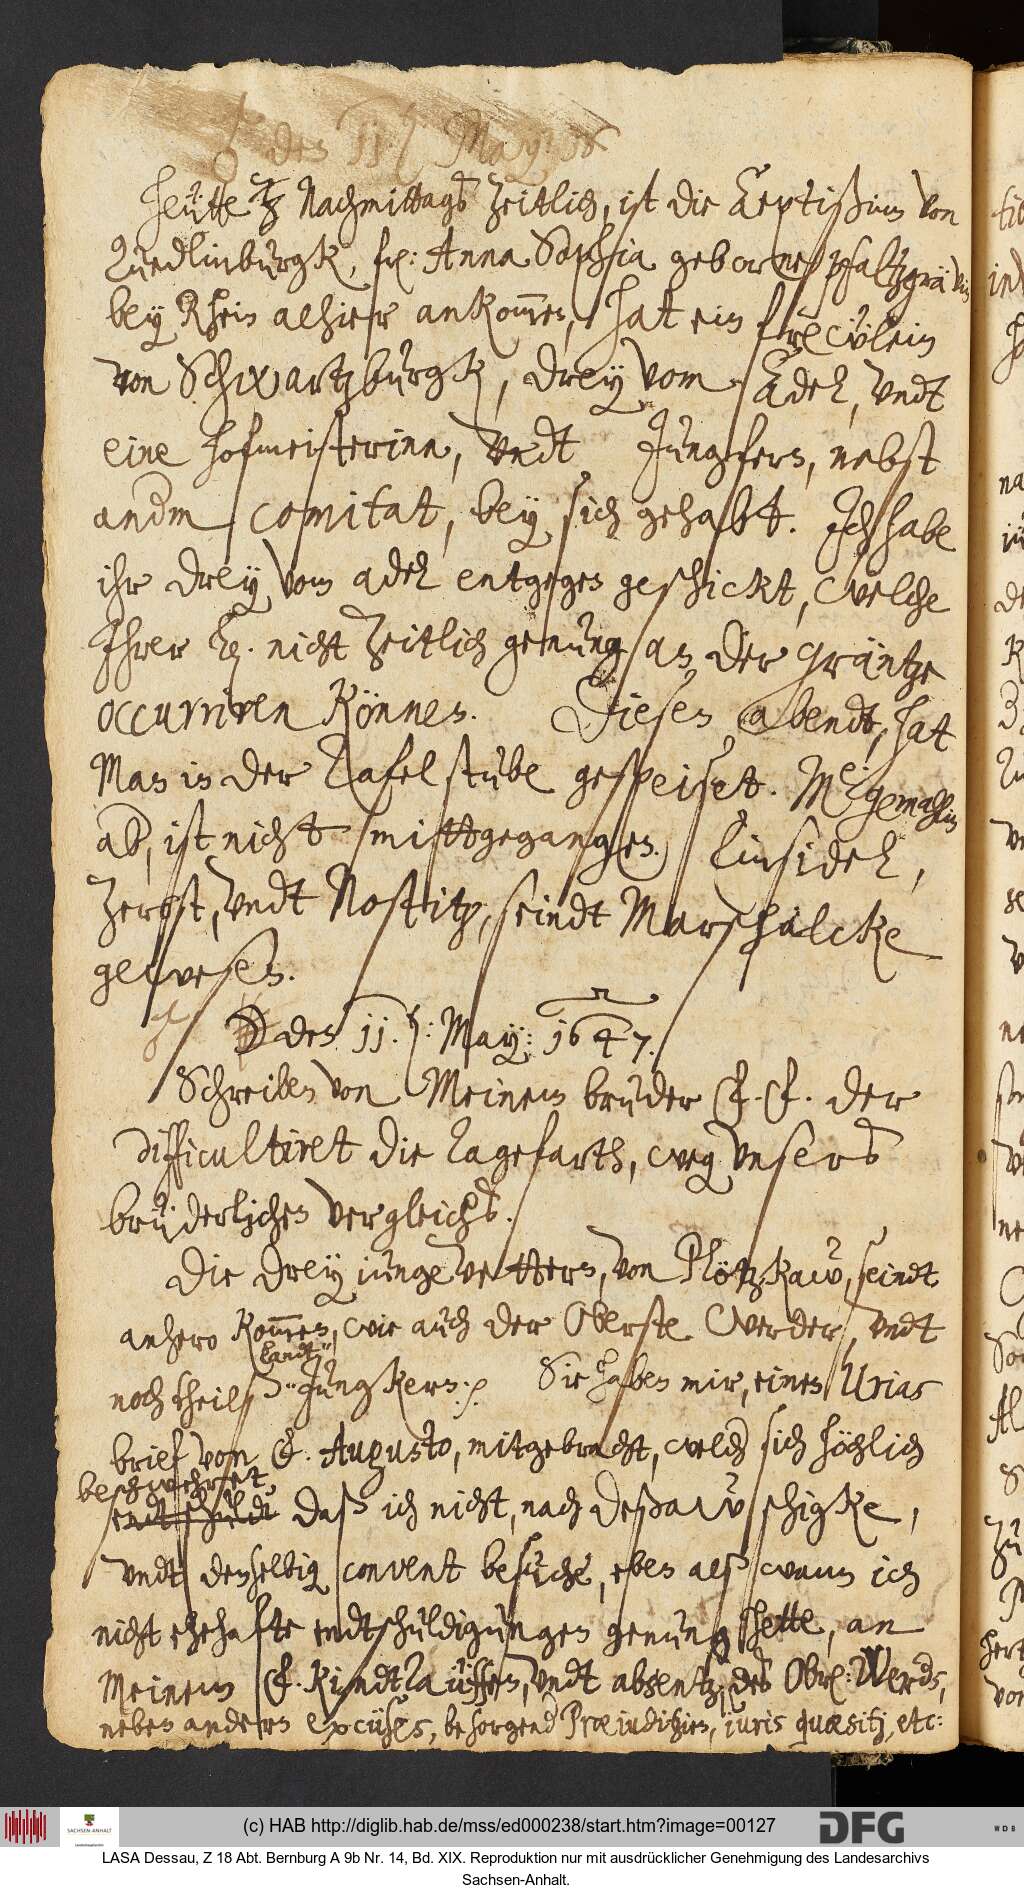 ♂ den 11. May: 16
Heütte Nachmittags zeitlich, ist die Aeptißinn von
Quedlinburgk, fr: Anna Sophia geborne pfaltzgrävin
bey Rhein alhier ankommen, hat ein frewlein
von Schwartzburgk, drey vom Adel, vndt
eine hofmeisterinn, vndt Jungfern, nebst
anderm comitat, bey sich gehabt. Ich habe
ihr drey vom adel entgegen geschickt, welche
Ihrer L. nicht zeitlich genung an der gräntze
occurriren können. Diesen abendt, hat
Man in der Tafelstube gespeiset. Me: gemahlin
ab, ist nicht mittgegangen. Einsidel,
Zerbst, vndt Nostitz, seindt Marschälcke
gewesen.
den 11. May: 1647.
Schreiben von Meinem bruder F. F. der
difficultiret die Tagefarth, weg vnsers
brüderlichen vergleichs.
Die drey iunge Vettern, von Plötzkaw, seindt
anhero kommen, wie auch der Oberste Werder, vndt
landt"
noch theilß "Junckern. Sie haben mir, einen Urias
brief von F. Augusto, mitgebracht, welch sich höchlich
beschwehret
endtschuldi daß ich nicht, nach Deßaw schigke,
vndt denselbig convent besuche, eben alß wann ich
nicht ehehafte endtschuldigungen genung hette, an
Meinem F. Kindtauffen, vndt absentz, des Obr: Werds,
neben andern excüsen, besorgend Præiuditzien, iuris quæsitj, etc:
(c) HAB http://diglib.hab.de/mss/ed000238/start.htm?image=00127
SACHSEN-ANHALT
DFG
WDB
LASA Dessau, Z 18 Abt. Bernburg A 9b Nr. 14, Bd. XIX. Reproduktion nur mit ausdrücklicher Genehmigung des Landesarchivs
Sachsen-Anhalt.